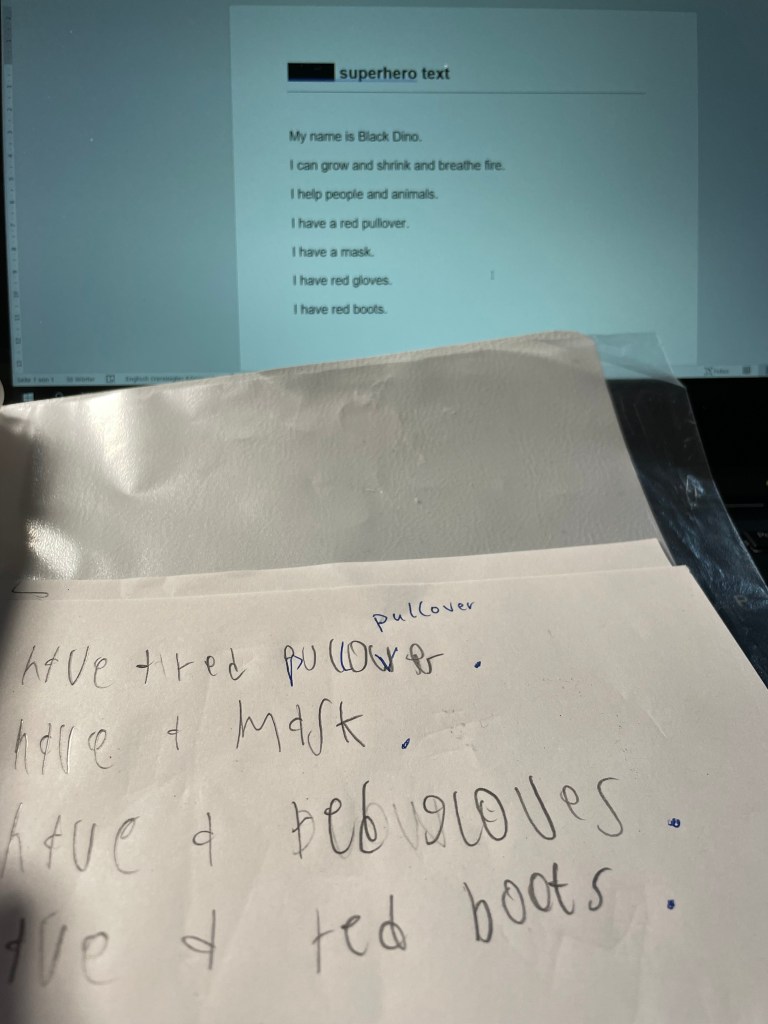 superhero text
My name is Black Dino.
I can grow and shrink and breathe fire.
I help people and animals.
I have a red pullover.
I have a mask.
I have red gloves.
I have red boots.
pullover
have a red pullover.
have a mask.
have a red gloves.
ave a red boots.